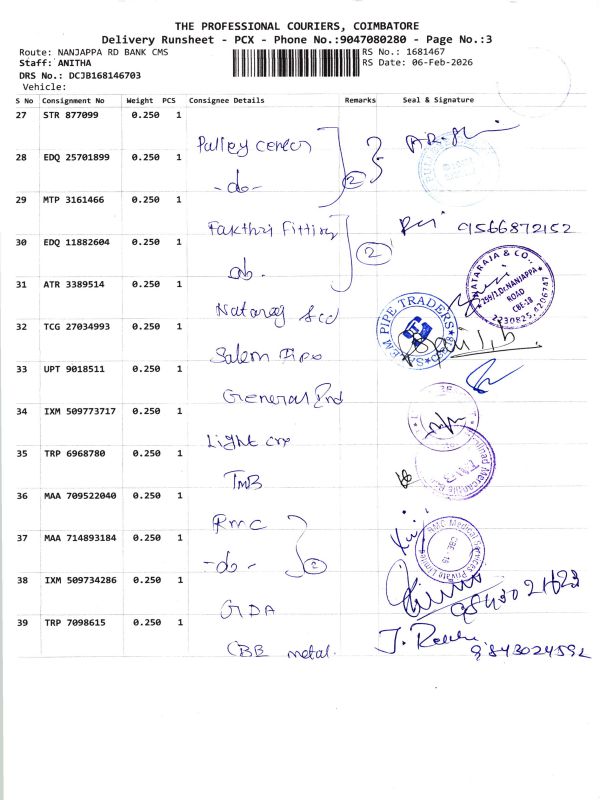 THE PROFESSIONAL COURIERS, COIMBATORE
Delivery Runsheet - PCX - Phone No.:9047080280 - Page No.:3
Route: NANJAPPA RD BANK CMS
RS No.: 1681467
Staff: ANITHA
RS Date: 06-Feb-2026
DRS No.: DCJB168146703
Vehicle:
S No Consignment No Weight PCS Consignee Details Remarks Seal & Signature
27 STR 877099 0.250 1
Pulley Center
28 EDQ 25701899 0.250 1
-do- 2
29 MTP 3161466 0.250 1
Fakthri Fitting 9566872152
30 EDQ 11882604 0.250 1
do. 2
31 ATR 3389514 0.250 1
Nataraj
NATARAJA & CO.,
299/1,Dr.NANJAPPA
ROAD
CBE-18
2230825, 6206747
32 TCG 27034993 0.250 1
Salem Pipe
SALEM PIPE TRADERS
33 UPT 9018511 0.250 1
General Ind
34 IXM 509773717 0.250 1
Light
35 TRP 6968780 0.250 1
TMB
Mercantile
TMB
36 MAA 709522040 0.250 1
RMC
37 MAA 714893184 0.250 1
-do- 2
RMC Medical Services Private Limited
CBE-15
38 IXM 509734286 0.250 1
GDA
39 TRP 7098615 0.250 1
CBB metal. 9843024592